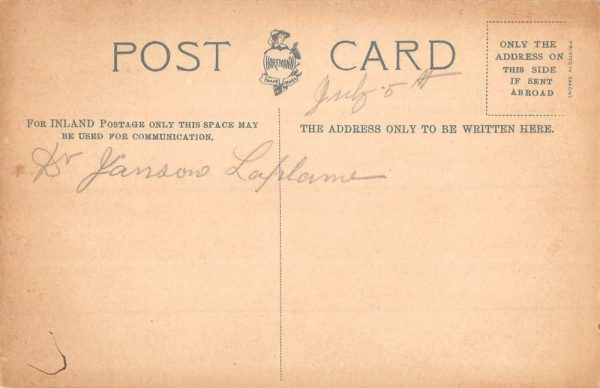 POST CARD
HARTMANN
TRADE MARK
ONLY THE
ADDRESS ON
THIS SIDE
IF SENT
ABROAD
PRINTED IN SAXONY
July 5th
FOR INLAND POSTAGE ONLY THIS SPACE MAY
BE USED FOR COMMUNICATION.
THE ADDRESS ONLY TO BE WRITTEN HERE.
Dr Janson Laplame